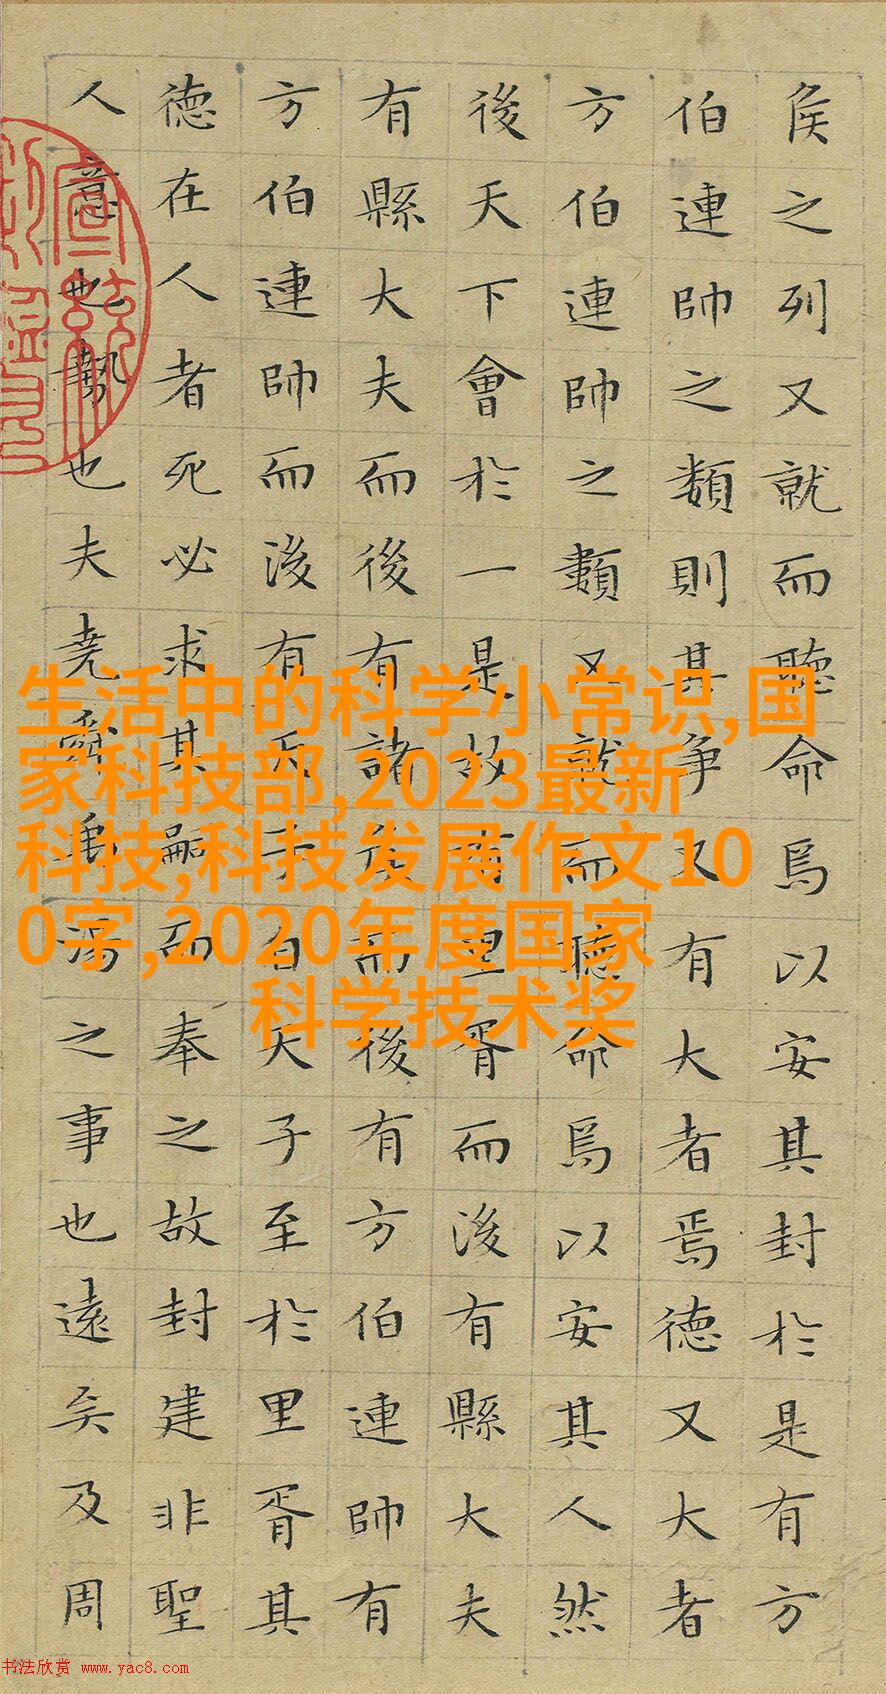 侯之列又就而聽命焉以安其封於是有方
伯連帥之類則其爭又有大者焉德又大者
方伯連帥之類又就而聽命焉以安其人然
後天下會於一是故有里胥而後有縣大夫
有縣大夫而後有諸侯而後有方伯連帥有
方伯連帥而後有天子自天子至於里胥其
德在人者死必求其嗣而奉之故封建非聖
人意也勢也夫堯舜禹湯之事也遠矣及周
生活中的科学小常识,国
家科技部,2023最新
科技,科技发展作文10
0字,2020年度国家
科学技术奖
书法欣赏 www.yac8.com